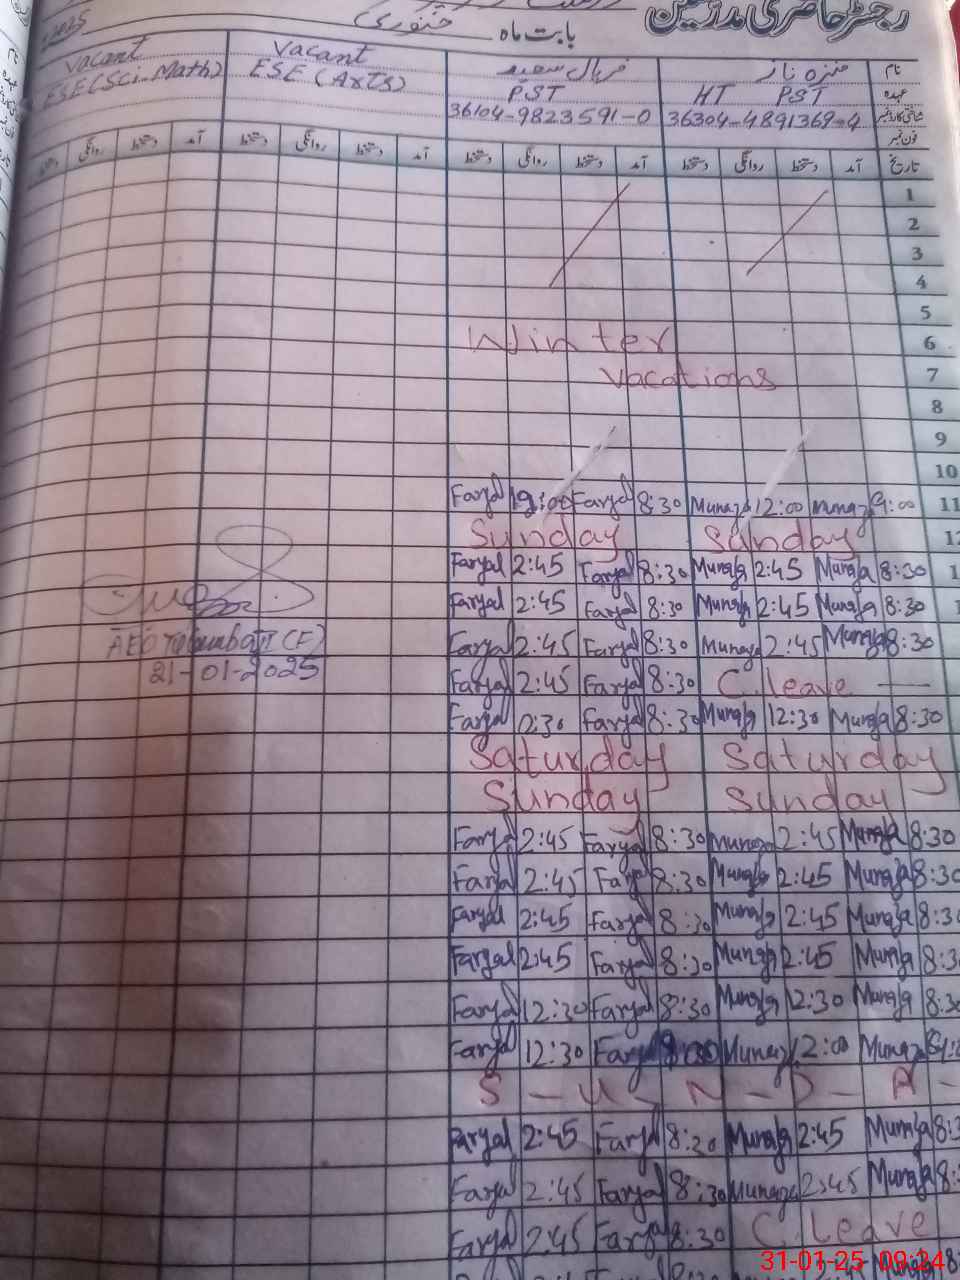 رجسٹر حاضری مدرسین
بابت ماہ جنوری 2025
نام منزہ ناز فریال سعید Vacant Vacant
عہدہ HT PST PST ESE (Arts) ESE (Sci-Math)
شناختی کارڈ نمبر 36304-4891369-4 36104-9823591-0
فون نمبر
تاریخ آمد دستخط روانگی دستخط آمد دستخط روانگی دستخط آمد دستخط روانگی دستخط آمد دستخط روانگی
1
2
3
4
5
Winter 6
Vacations 7
8
9
10
Faryal 12:00 Faryal 8:30 Munaza 12:00 Munaza 9:00 11
Sunday Sunday 12
Faryal 2:45 Faryal 8:30 Munaza 2:45 Munaza 8:30 1
Faryal 2:45 Faryal 8:30 Munaza 2:45 Munaza 8:30 1
Faryal 2:45 Faryal 8:30 Munaza 2:45 Munaza 8:30
AEO (F)
21-01-2025
Faryal 2:45 Faryal 8:30 C.leave —
Faryal 12:30 Faryal 8:30 Munaza 12:30 Munaza 8:30
Saturday Saturday
Sunday Sunday
Faryal 2:45 Faryal 8:30 Munaza 2:45 Munaza 8:30
Faryal 2:45 Faryal 8:30 Munaza 2:45 Munaza 8:30
Faryal 2:45 Faryal 8:30 Munaza 2:45 Munaza 8:3
Faryal 2:45 Faryal 8:30 Munaza 2:45 Munaza 8:3
Faryal 12:30 Faryal 8:30 Munaza 12:30 Munaza 8:30
Faryal 12:30 Faryal Munaza 12:00 Munaza
S - U - N - D - A -
Faryal 2:45 Faryal 8:30 Munaza 2:45 Munaza 8:3
Faryal 2:45 Faryal 8:30 Munaza 2:45 Munaza 8:
Faryal 2:45 Faryal 8:30 C. leave
31-01-25 09:24